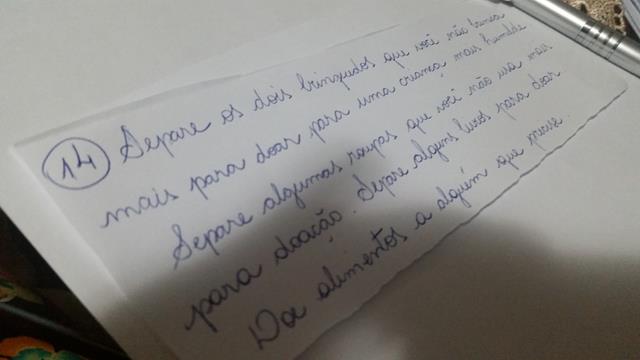 14 Separe os dois brinquedos que você não brinca
mais para doar para uma criança mais humilde
Separe algumas roupas que você não usa mais
para doação. Separe alguns livros para doar
Doe alimentos a alguém que precise.